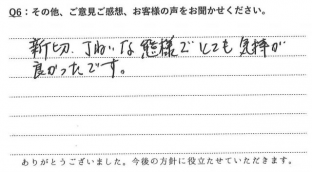 Q6：その他、ご意見ご感想、お客様の声をお聞かせください。
新切、丁ねいな態様でとても気持が
良かったです。
ありがとうございました。今後の方針に役立たせていただきます。